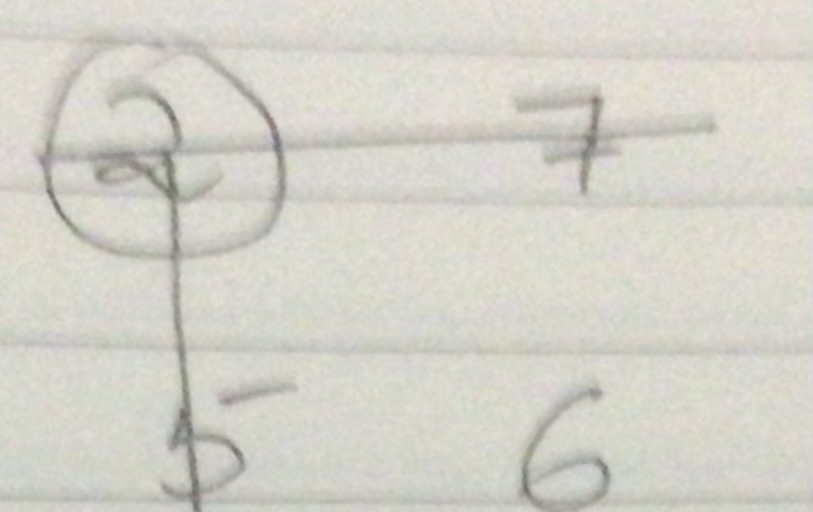 2 7
5 6